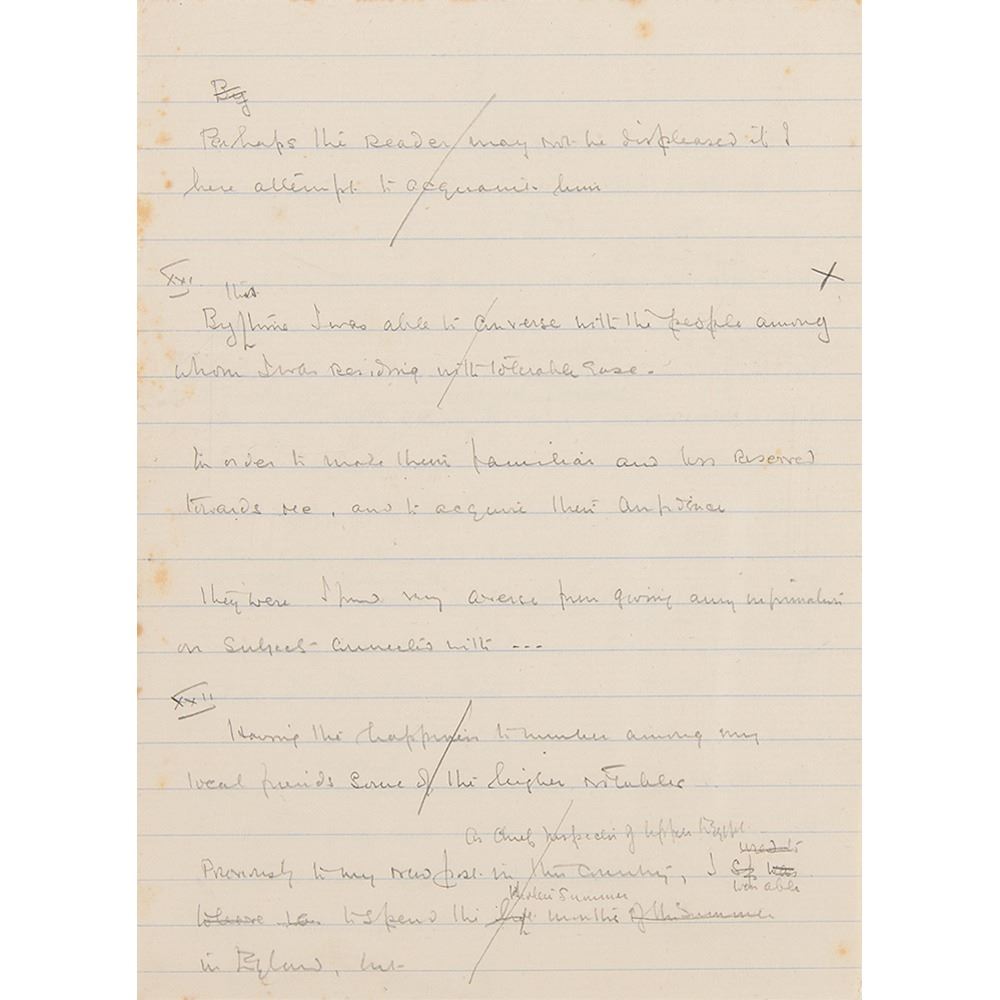 By
Perhaps the reader may not be displeased if I
here attempt to acquaint him
XXI.
this
By time I was able to converse with the people among
whom I was residing with tolerable ease.
X
In order to make them familiar and less reserved
towards me, and to acquire their confidence
They were I found very averse from giving any information
on subjects connected with ---
XXII
Having the happiness to number among my
local friends some of the higher notables
As Chief Inspector of Upper Egypt
Previously to my new post in this country, I was
used to
was able
to leave to spend the months of the summer
hotter Summer
in England, but